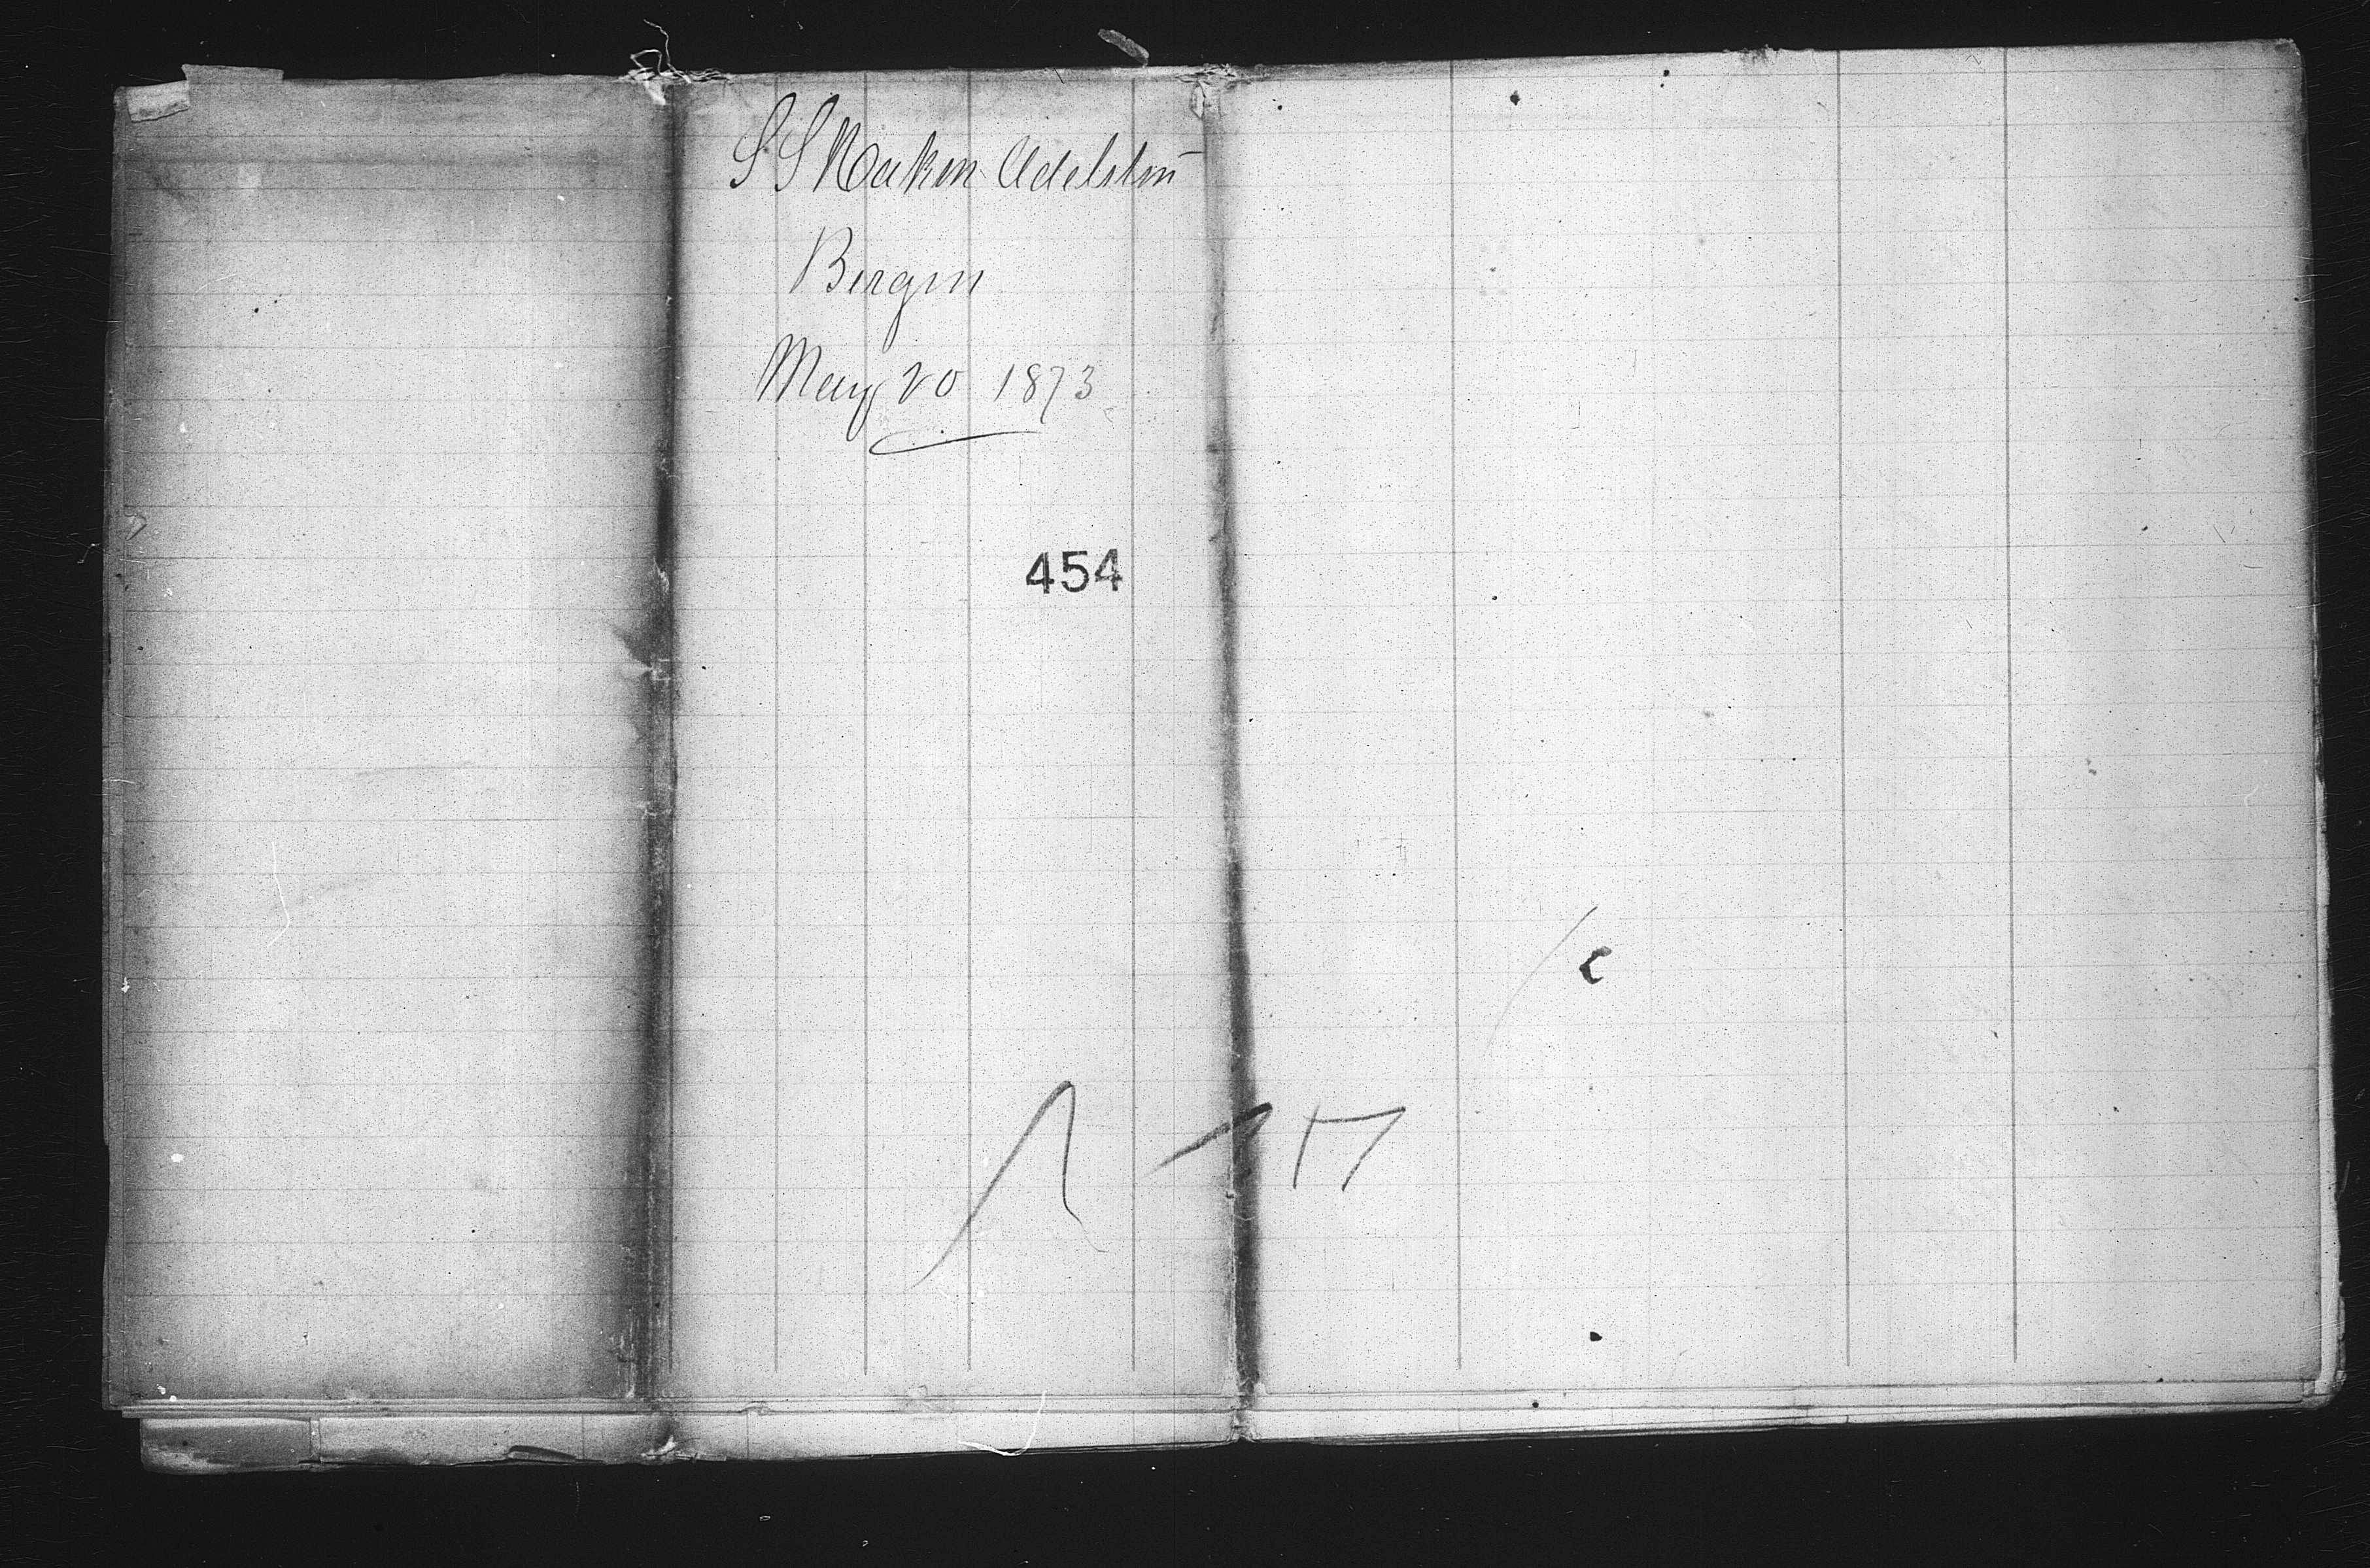 S S Hakon Adelsten
Bergen
May 20 1873
454